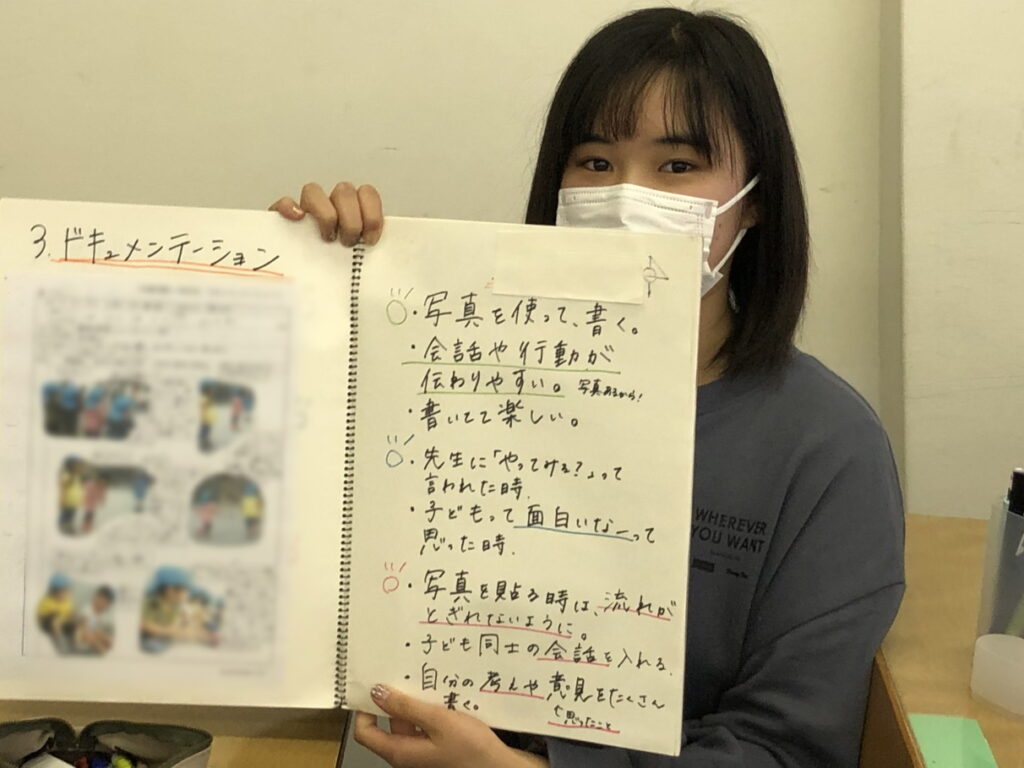 3. ドキュメンテーション
・写真を使って、書く。
・会話や行動が
伝わりやすい。 写真あるから!
・書いてて楽しい。
・先生に「やってみる?」って
言われた時.
・子どもって面白いなーって
思った時.
・写真を貼る時は、流れが
とぎれないように。
・子ども同士の会話を入れる.
・自分の考えや意見をたくさん
書く。 思ったこと
WHEREVER
YOU WANT